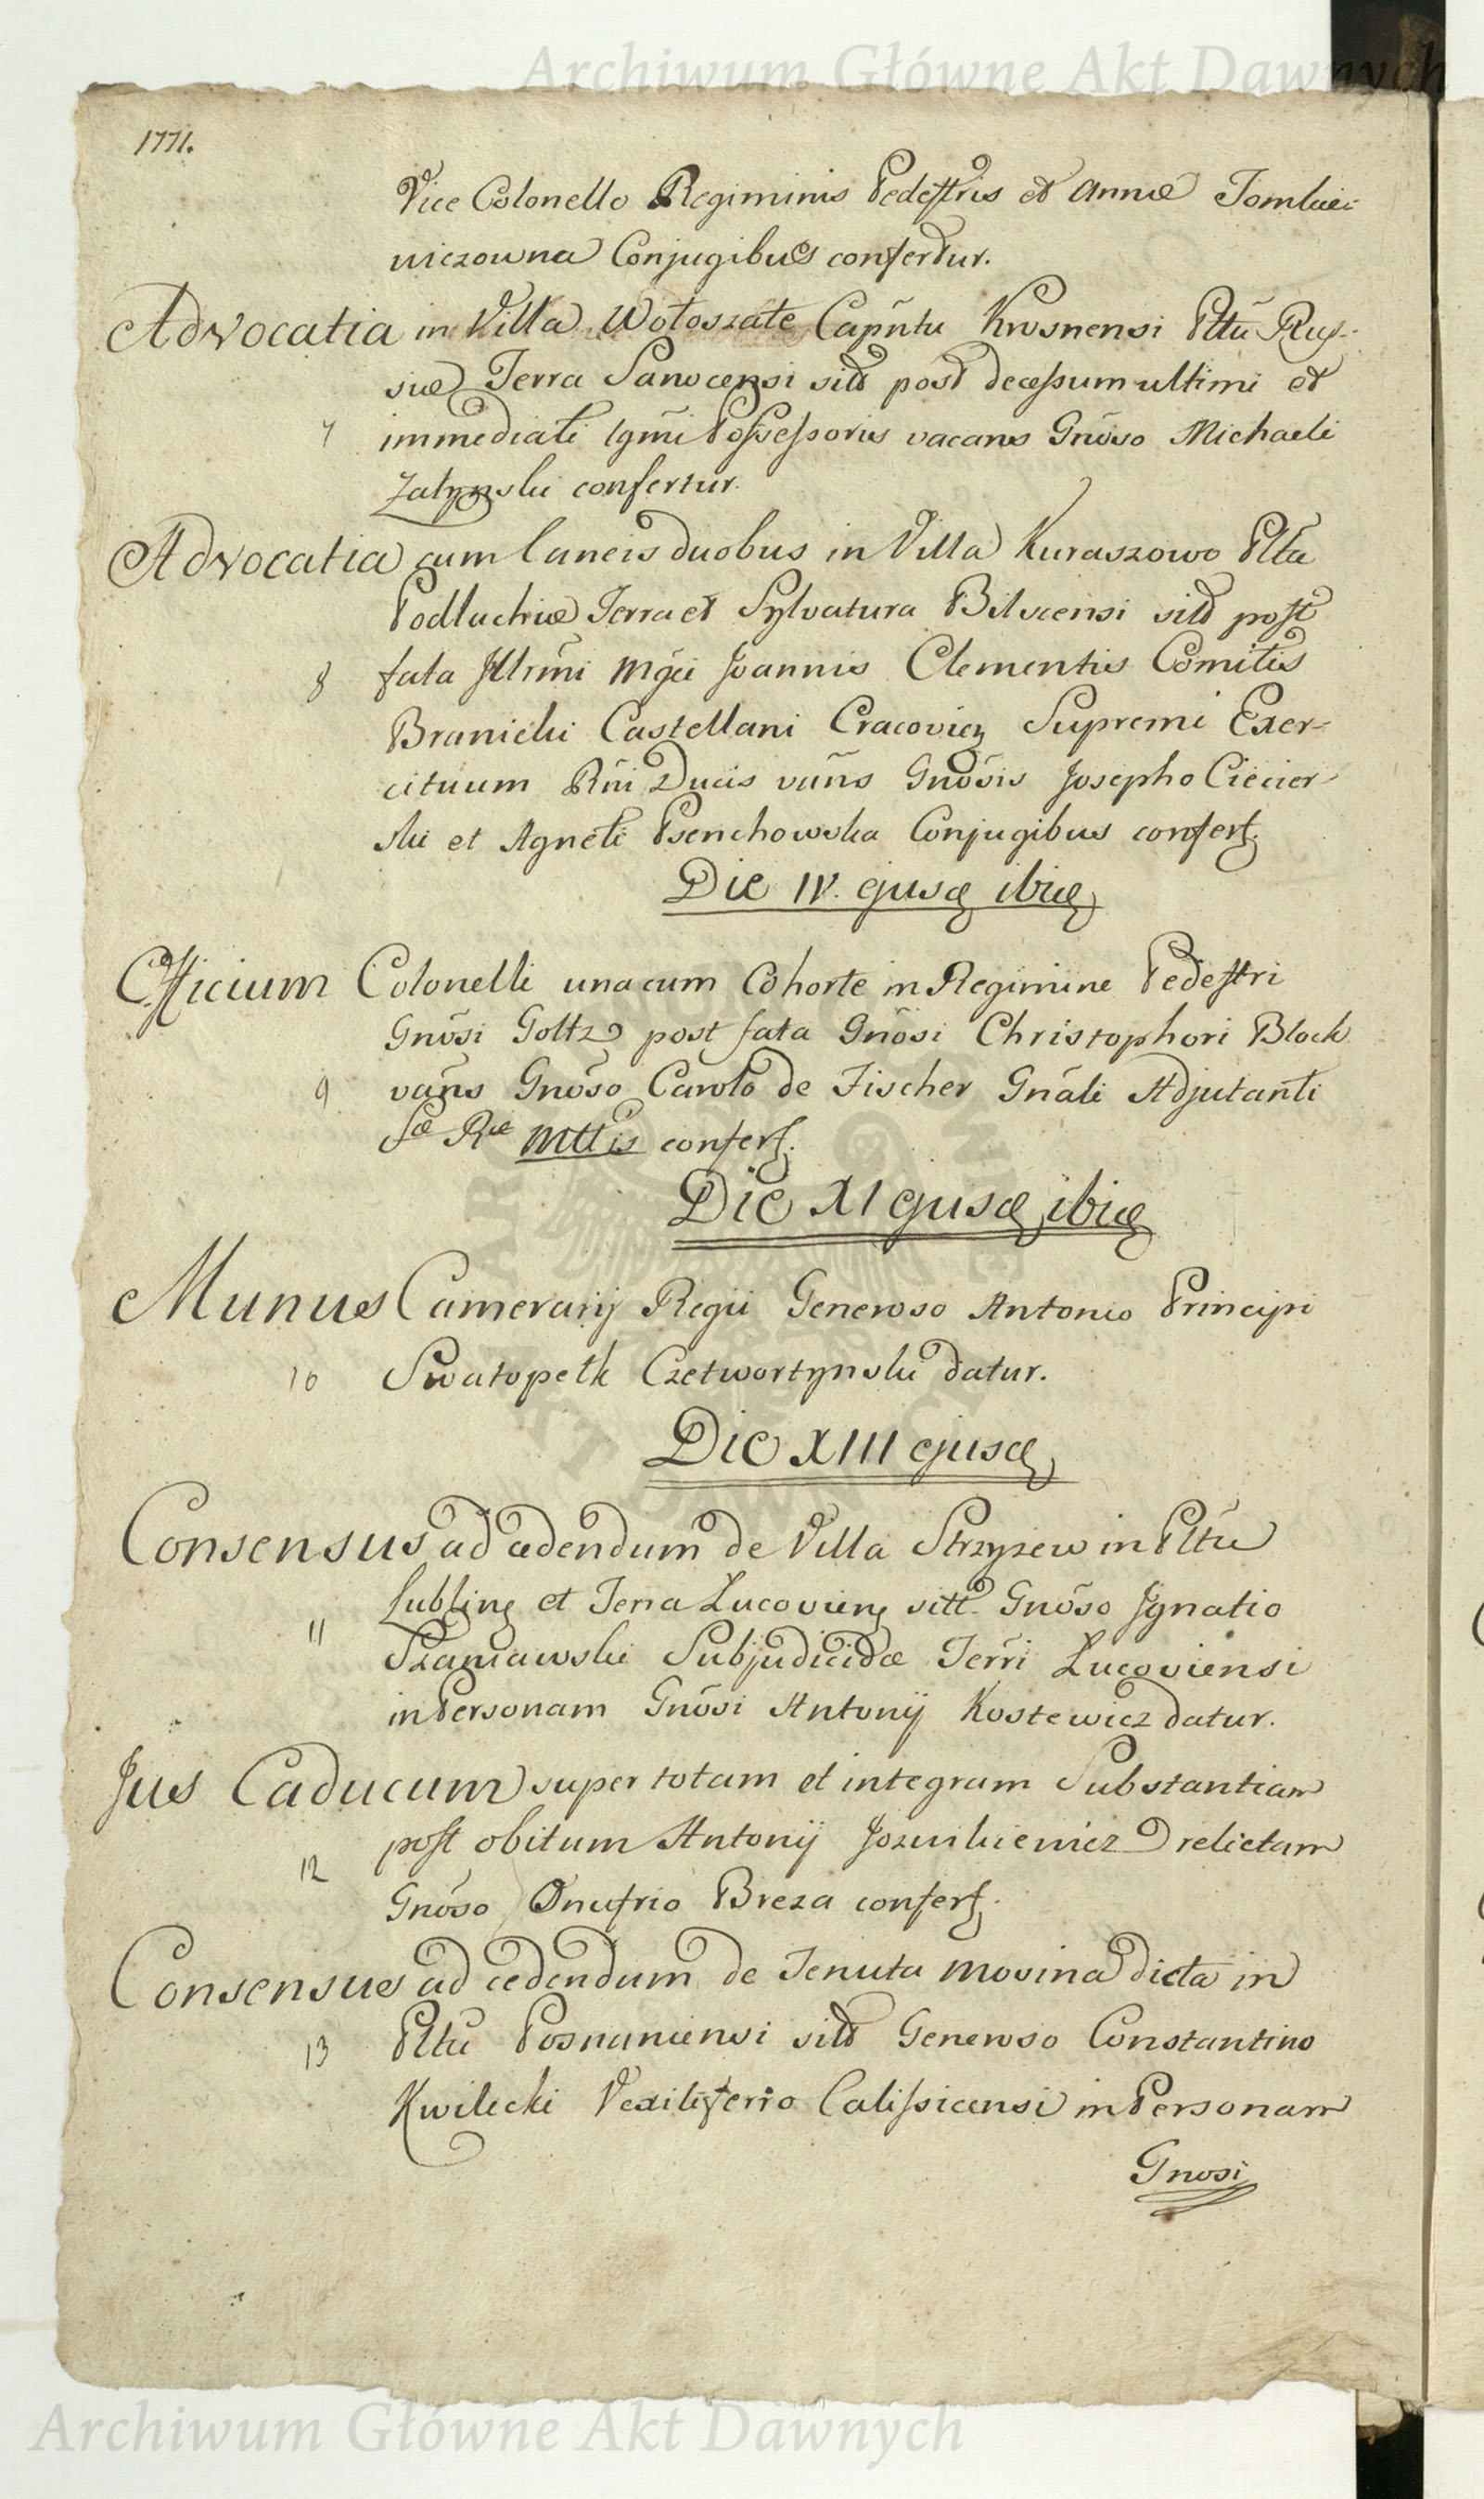 Archiwum Główne Akt Dawnych
1771.
Vice Colonello Regiminis Pedestris et Annæ Tomkie-
wiczowna Conjugibus confertur.
Advocatia in Villa Wołoszate Capñtu Krosnensi Pltũ Rus-
siæ Terra Sanocensi sita post decessum ultimi et
7 immediati Igmi Possessoris vacans Gnõso Michaeli
Zatynski confertur.
Advocatia cum laneis duobus in Villa Kuraszowo Pltu
Podlachiæ Terra et Sylvatura Bilscensi sita post
8 fata Jllrmi Mgci Joannis Clementis Comitis
Branicki Castellani Cracovien Supremi Exer-
cituum Rñi Ducis vañs Gnõsis Josepho Ciecier-
ski et Agneti Psenchowska Conjugibus confert.
Die IV. ejusd ibid
Officium Colonelli unacum Cohorte in Regimine Pedestri
Gnõsi Goltz post fata Gnõsi Christophori Block
9 vañs Gnõso Carolo de Fischer Gnãli Adjutanti
Sæ Ræ Mttis confert.
Die XI ejusd ibid
Munus Camerarij Regii Generoso Antonio Principi
10 Swatopelk Czetwortynski datur.
Die XIII ejusd
Consensus ad cedendum de Villa Strzyzew in Pltu
Lublin et Terra Lucovien sitt. Gnõso Jgnatio
11 Szaniawski Subjudicidæ Terri Lucoviensi
in Personam Gnõsi Antonij Kostewicz datur.
Jus Caducum super totam et integram Substantiam
post obitum Antonij relictam
12
Gnõso Onufrio Breza confert.
Consensus ad cedendum de Tenuta Movina dicta in
13 Pltu Posnaniensi sita Generoso Constantino
Kwilecki Vexillifero Calissiensi in Personam
Gnosi
Archiwum Główne Akt Dawnych